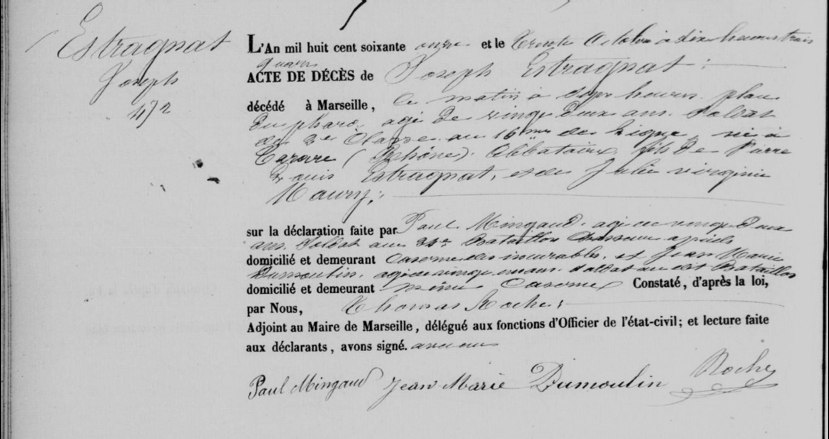 Estragnat
Joseph
472
L'An mil huit cent soixante onze et le Trente Octobre à dix heures trois
quarts
ACTE DE DÉCÈS de Joseph Estragnat :
décédé à Marseille, ce matin à heures place
du pharo, agé de vingt deux ans. Soldat
de 2e Classe au 16me de Ligne, né à
(Rhône). Célibataire, fils de Pierre
Louis Estragnat, et de Julie Virginie
Maury;
sur la déclaration faite par Paul Mingaud, agé de vingt deux
ans, Soldat au 24e Bataillon Chasseurs à pied
domicilié et demeurant Caserne des incurables, et Jean Marie
Dumoulin, agé de vingt ans Soldat au dit Bataillon
domicilié et demeurant même Caserne Constaté, d'après la loi,
par Nous, Thomas Roche;
Adjoint au Maire de Marseille, délégué aux fonctions d'Officier de l'état-civil; et lecture faite
aux déclarants, avons signé. avec eux
Paul Mingaud Jean Marie Dumoulin Roche